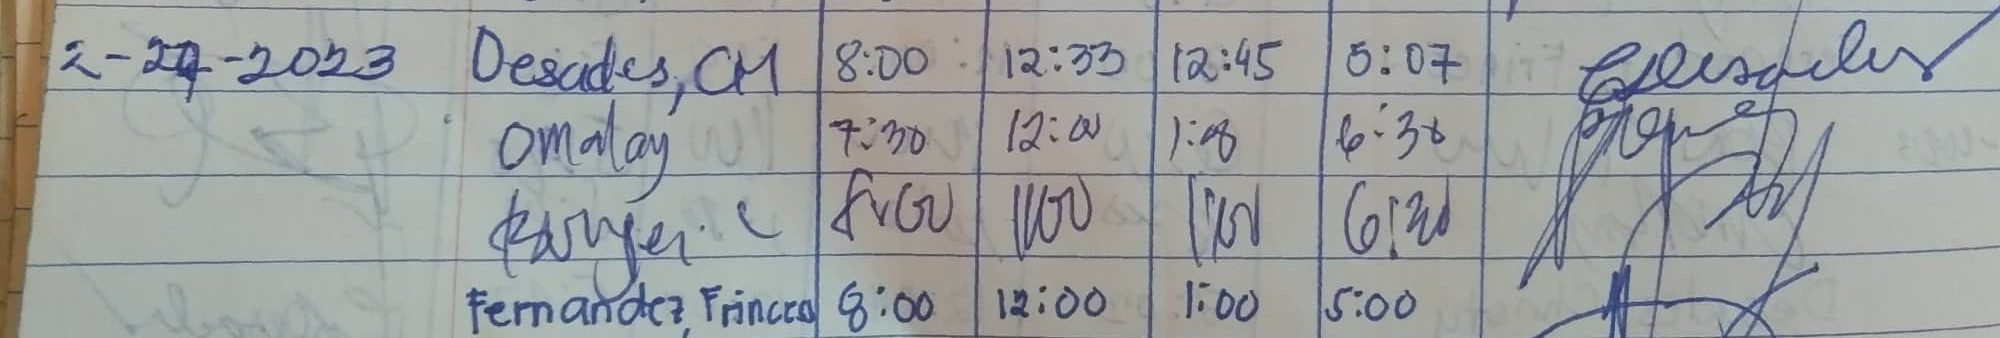 2-27-2023 Desades, CM 8:00 12:33 12:45 5:07
Omalay 7:30 12:00 1:00 6:30
8:00 1:00 6:30
Fernandez, Princess 8:00 12:00 1:00 5:00